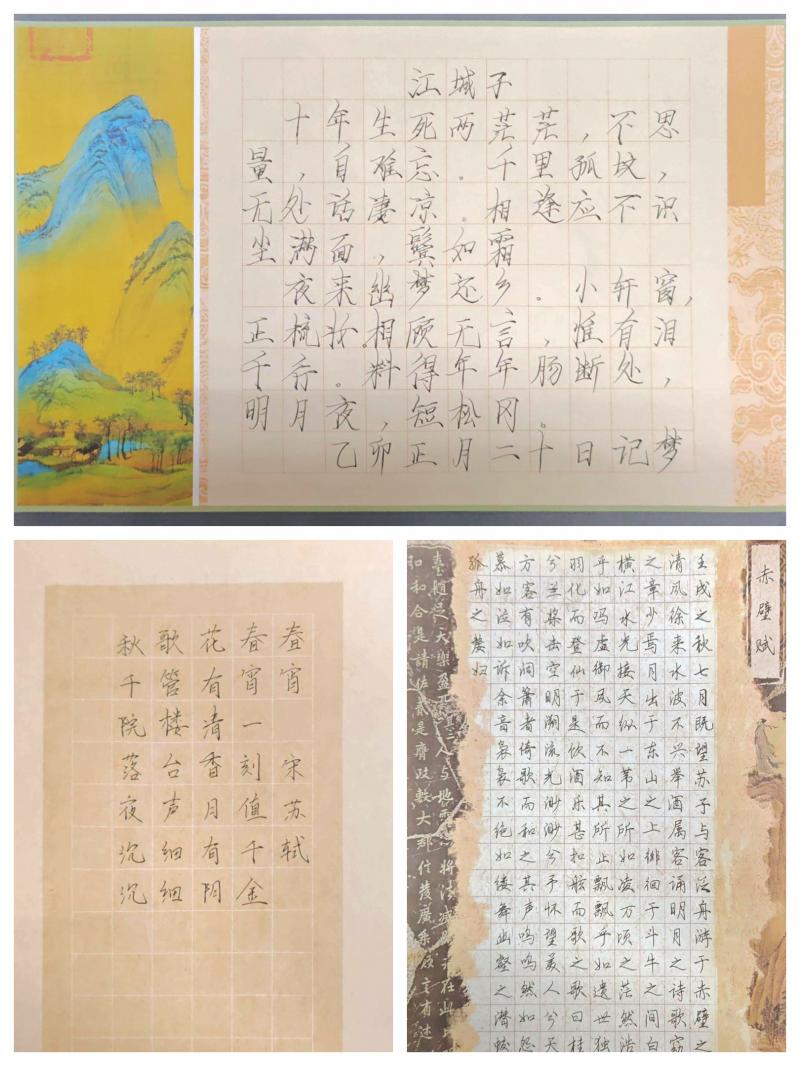 江城子
十年生死两茫茫，不思
量，自难忘。千里孤坟，
无处话凄凉。相逢应不识
尘满面，鬓如霜
夜来幽梦还乡。小轩窗,
正梳妆相顾无言，惟有泪
千行。料得年年肠断处，
明月夜，短松冈。
乙卯正月二十日记梦
春宵 宋苏轼
春宵一刻值千金
花有清香月有阴
歌管楼台声细细
秋千院落夜沉沉
赤壁赋
壬戌之秋七月既望苏子与客泛舟游于赤壁之
清风徐来水波不兴举酒属客诵明月之诗歌窈
之章少焉月出于东山之上徘徊于斗牛之间白
横江水光接天纵一苇之所如凌万顷之茫然浩
乎如冯虚御风而不知其所止飘飘乎如遗世独
羽化而登仙于是饮酒乐甚扣舷而歌之歌曰桂
兮兰桨击空明溯流光渺渺兮予怀望美人兮天
方客有吹洞箫者倚歌而和之其声呜呜然如怨
慕如泣如诉余音袅袅不绝如缕舞幽壑之潜蛟
孤舟之嫠妇